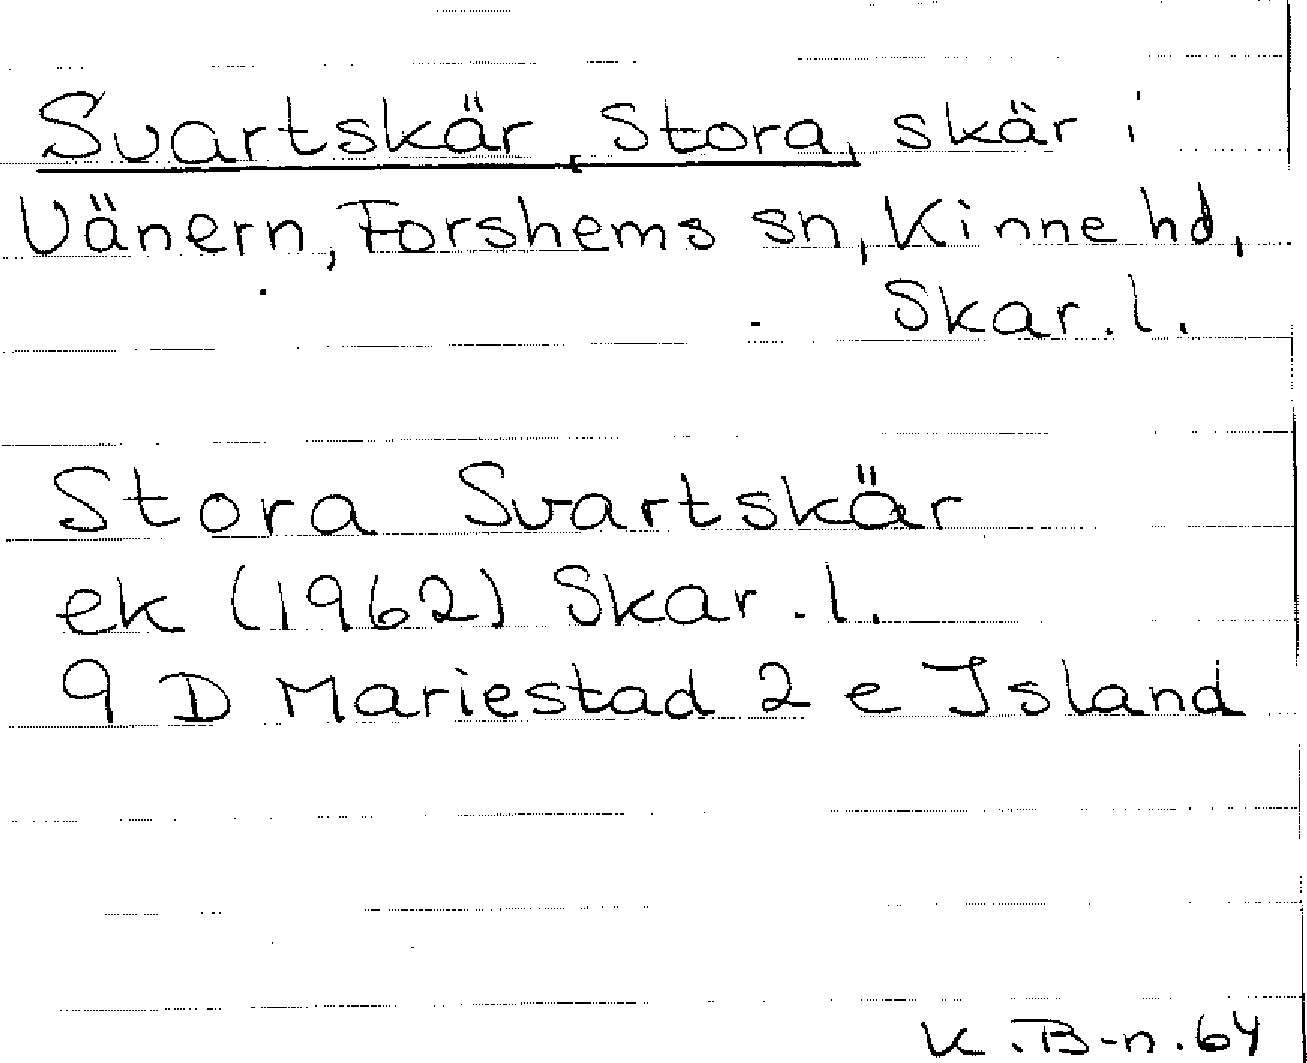 Svartskär, Stora, skär i
Vänern, Forshems sn, Kinne hd,
Skar. l.
Stora Svartskär
ek (1962) Skar. l.
9 D Mariestad 2 e Island
K. B-n. 64